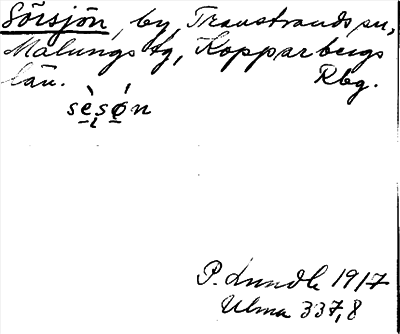 Sörsjön, by, Transtrands sn,
Malungs tg, Kopparbergs
län. Rbg.
sè̱sǿ̱n
P. Lundh 1917
Ulma 337,8